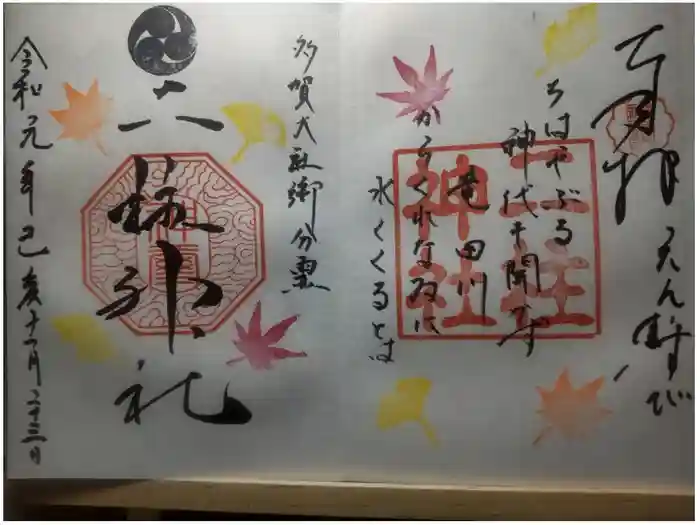 奉拝
えん結び
ちはやぶる
神代も聞かず
竜田川
からくれなゐに
水くくるとは
二柱
神社
多賀大社御分霊
二柱神社
令和元年己亥十一月二十三日